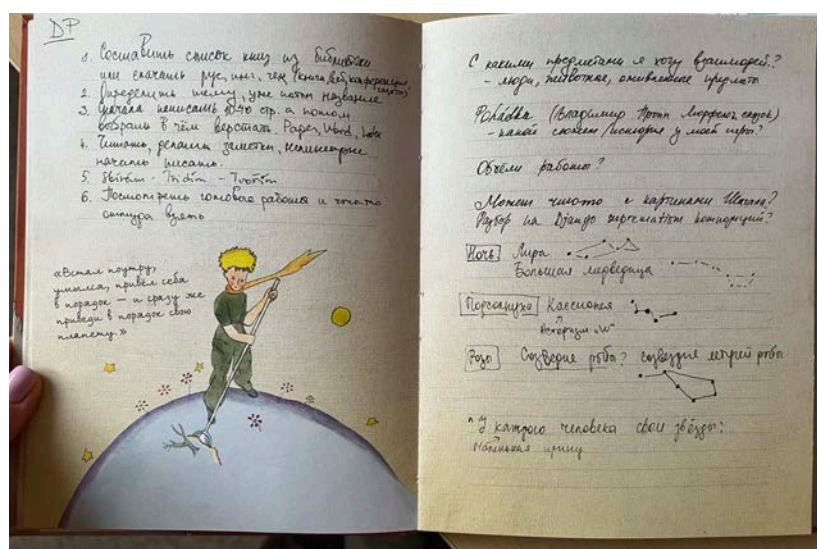 DP
1. Составить список книг из библиотеки
или скачать рус, инг, чеш (книга, веб, конференция,
2. Определить тему, уже потом название
3. Сначала написать 30-40 стр. а потом
выбрать в чём верстать. Paper, Word,
4. Читать, делать заметки,
начать писать.
5. Sbírám - Třídím - Tvořím
6. Посмотреть готовые работы и что-то
оттуда взять
«Встал поутру,
умылся, привёл себя
в порядок — и сразу же
приведи в порядок свою
планету.»
С какими предметами я хочу взаимодей.?
- люди, животное, оживленные предметы
Pohádka (Владимир Пропп Морфолог. сказок)
- какой сюжет/история у моей игры?
Объём работы?
Может что-то с картинами Шагала?
Разбор на Django композиций?
Ночь Лира
Большая медведица
Кассиопея
Астеризм „W"
Роза Созвездие рыбы? созвездие летучей рыбы
"У каждого человека свои звёзды"
Маленький принц